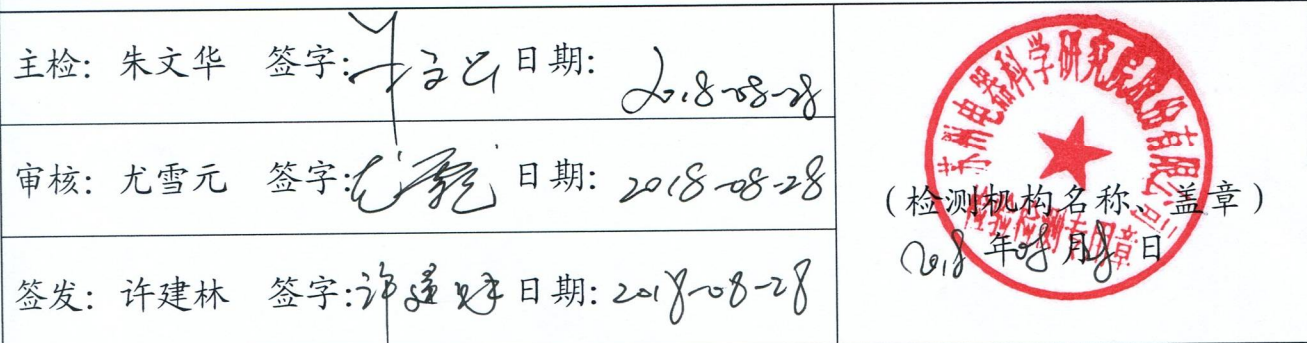 主检：朱文华 签字：朱文华 日期：2018-08-28
审核：尤雪元 签字：尤雪元 日期：2018-08-28
签发：许建林 签字：许建林 日期：2018-08-28
苏州电器科学研究院股份有限公司
（检测机构名称、盖章）
检验检测专用章
2018 年 08 月 28 日